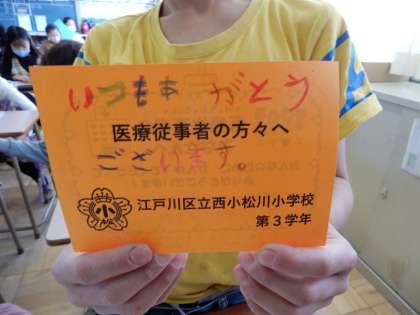 いつもありがとう
医療従事者の方々へ
ございます。
江戸川区立西小松川小学校
第３学年